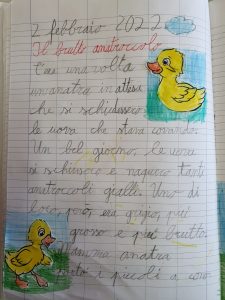 2 febbraio 2022
Il brutto anatroccolo
C'era una volta
un'anatra in attesa
che si schiudessero
le uova che stava covando.
Un bel giorno, le uova
si schiusero e nacquero tanti
anatroccoli gialli. Uno di
loro, però, era grigio, più
grosso e più brutto.
Mamma anatra
portò i piccoli a